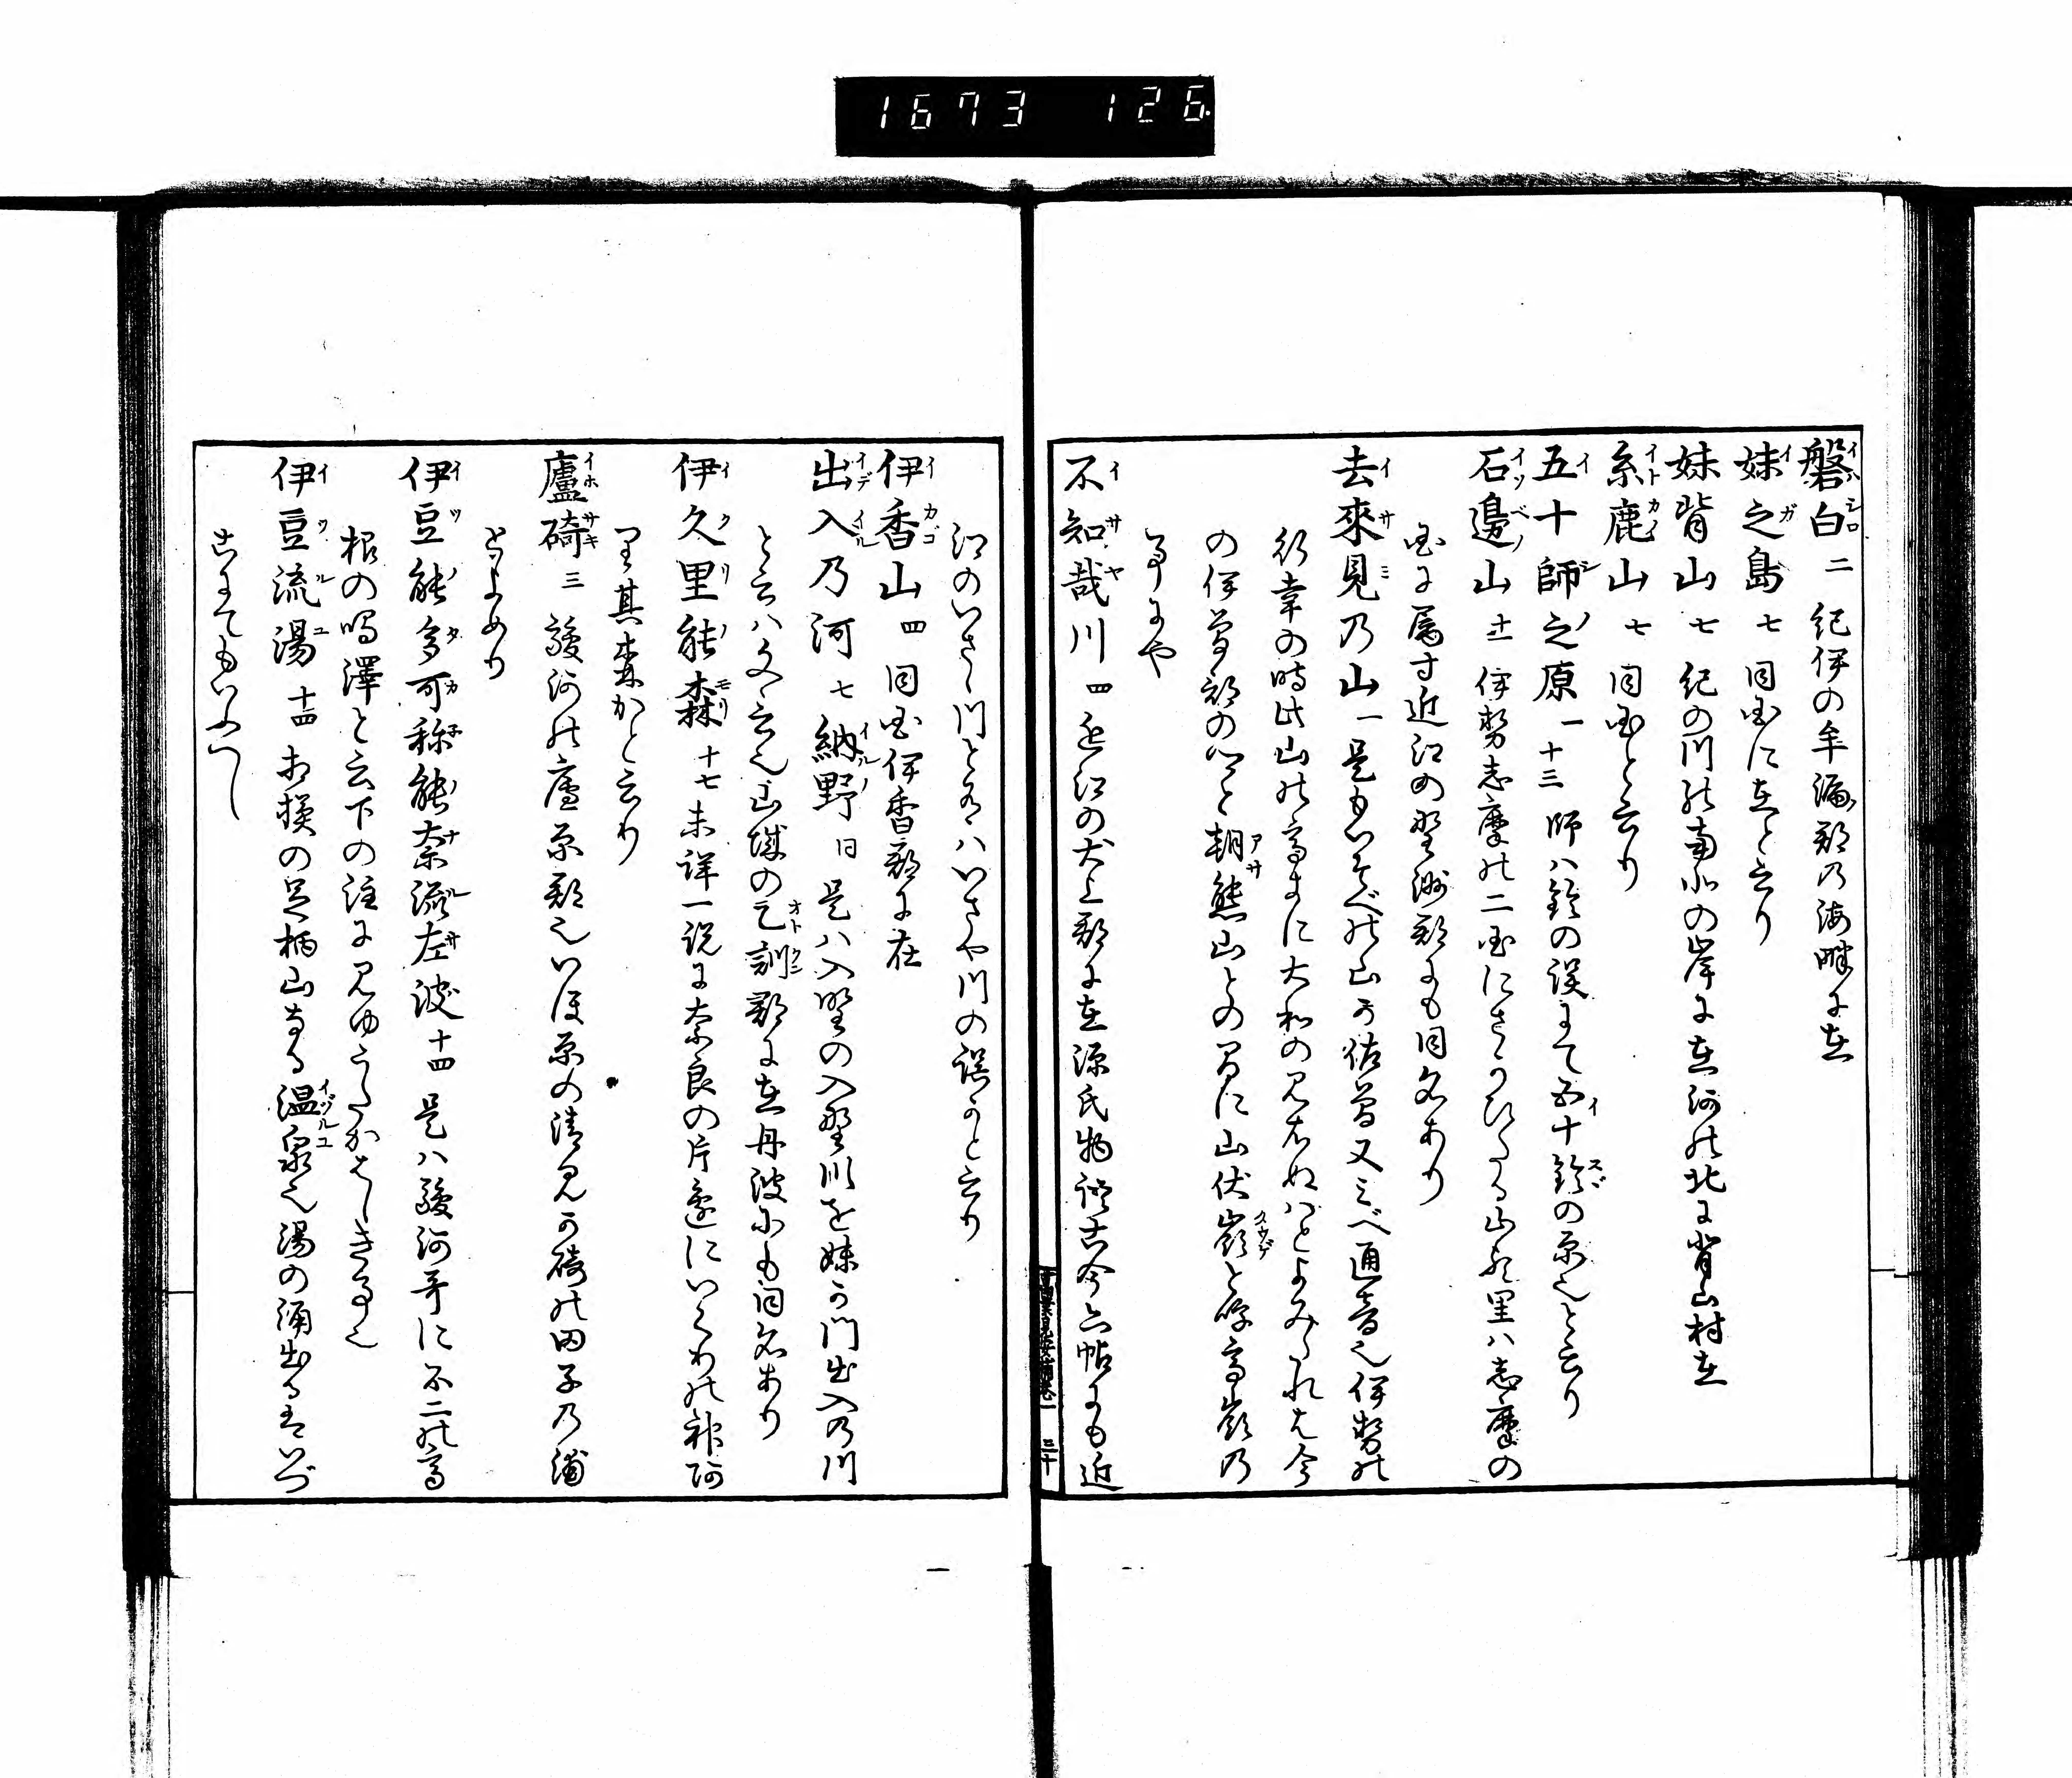 1673 126
磐白 二 紀伊の牟漏郡乃海畔に在
妹之島 七 同国に在と云り
妹背山 七 紀の川の南北の岸に在河の北に背山村在
糸鹿山 七 同国と云り
五十師之原 一 十三 師ハ鈴の誤にて五十鈴の原也と云り
石邊山 十一 伊勢志摩の二国にさかひたる山也里ハ志摩の
国に属す近江の野洲郡にも同名あり
去來見乃山 一 是もいそべの山か佐曽又ミべ通音也伊勢の
行幸の時此山の高きに大和の見えぬハとよみたれは今
の伊曽部のと朝熊山との間に山伏嶺と呼高嶺乃
事にや
不知哉川 四 近江の犬上郡に在源氏物語古今六帖にも近
江のいさら川とあるハいさや川の誤かと云り
伊香山 四 同国伊香郡に在
出入乃河 七 納野 同 是ハ入野の入野川を妹か門出入乃川
と云ハ文に云也山城の乙訓郡に在丹波にも同名あり
伊久里能森 十七 未詳一説に奈良の片邊にいくりの神阿
り其森かと云り
廬碕 三 駿河の廬原郡也いほ原の清見か碕の田子乃浦
とよめり
伊豆能多可祢能奈流左波 十四 是ハ駿河哥に不二の高
根の鳴澤と云下の注に見ゆうたかはしき事也
伊豆流湯 十四 相模の足柄山なる温泉也湯の涌出るをいづ
るにてもいふへし
三十